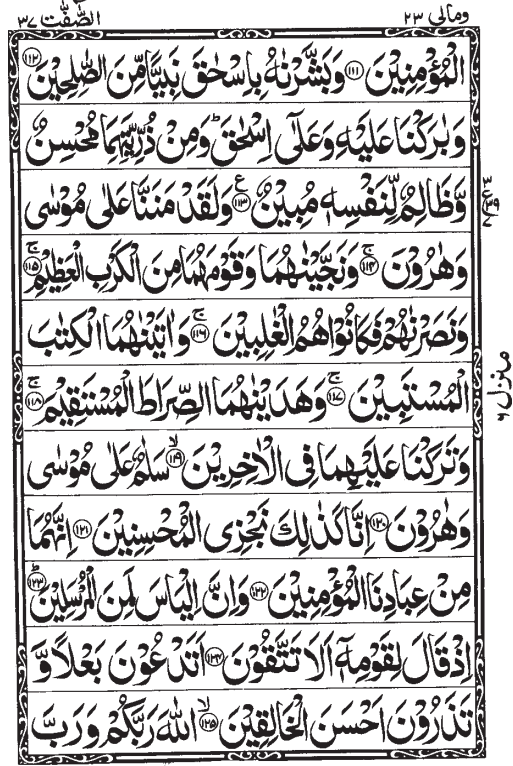 ومالی ۲۳
الصّٰفّٰت ۳۷
الْمُؤْمِنِیْنَ ﴿۱۱۱﴾ وَبَشَّرْنٰهُ بِاِسْحٰقَ نَبِیًّا مِّنَ الصّٰلِحِیْنَ ﴿۱۱۲﴾
وَبٰرَكْنَا عَلَیْهِ وَعَلٰۤی اِسْحٰقَ ؕ وَمِنْ ذُرِّیَّتِهِمَا مُحْسِنٌ
وَّظَالِمٌ لِّنَفْسِهٖ مُبِیْنٌ ﴿۱۱۳﴾ ع وَلَقَدْ مَنَنَّا عَلٰی مُوْسٰی
وَهٰرُوْنَ ﴿۱۱۴﴾ ۚ وَنَجَّیْنٰهُمَا وَقَوْمَهُمَا مِنَ الْكَرْبِ الْعَظِیْمِ ﴿۱۱۵﴾ ۚ
وَنَصَرْنٰهُمْ فَكَانُوْا هُمُ الْغٰلِبِیْنَ ﴿۱۱۶﴾ ۚ وَاٰتَیْنٰهُمَا الْكِتٰبَ
الْمُسْتَبِیْنَ ﴿۱۱۷﴾ ۚ وَهَدَیْنٰهُمَا الصِّرَاطَ الْمُسْتَقِیْمَ ﴿۱۱۸﴾ ۚ
وَتَرَكْنَا عَلَیْهِمَا فِی الْاٰخِرِیْنَ ﴿۱۱۹﴾ ۙ سَلٰمٌ عَلٰی مُوْسٰی
وَهٰرُوْنَ ﴿۱۲۰﴾ اِنَّا كَذٰلِكَ نَجْزِی الْمُحْسِنِیْنَ ﴿۱۲۱﴾ اِنَّهُمَا
مِنْ عِبَادِنَا الْمُؤْمِنِیْنَ ﴿۱۲۲﴾ وَاِنَّ اِلْیَاسَ لَمِنَ الْمُرْسَلِیْنَ ﴿۱۲۳﴾ ؕ
اِذْ قَالَ لِقَوْمِهٖۤ اَلَا تَتَّقُوْنَ ﴿۱۲۴﴾ اَتَدْعُوْنَ بَعْلًا وَّ
تَذَرُوْنَ اَحْسَنَ الْخَالِقِیْنَ ﴿۱۲۵﴾ ۙ اللّٰهَ رَبَّكُمْ وَرَبَّ
منزل ۶